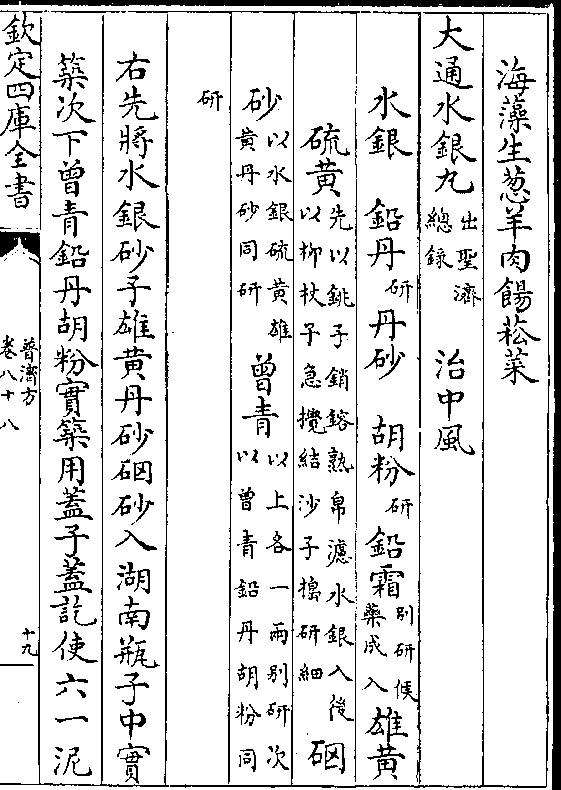 海藻生葱羊肉餳菘菜
大通水銀丸出聖濟總錄 治中風
水銀 鉛丹研 丹砂 胡粉研 鉛霜别研候藥成入 雄黄
硫黄先以銚子銷鎔熟帛濾水銀入後以柳杖子急攪結沙子搗研細 硇
砂以水銀硫黄雄黄丹砂同研 曾青以上各一兩别研次以曾青鉛丹胡粉同
研
右先將水銀砂子雄黄丹砂硇砂入湖南瓶子中實
築次下曾青鉛丹胡粉實築用蓋子蓋訖使六一泥
欽定四庫全書
普濟方
卷八十八
十九